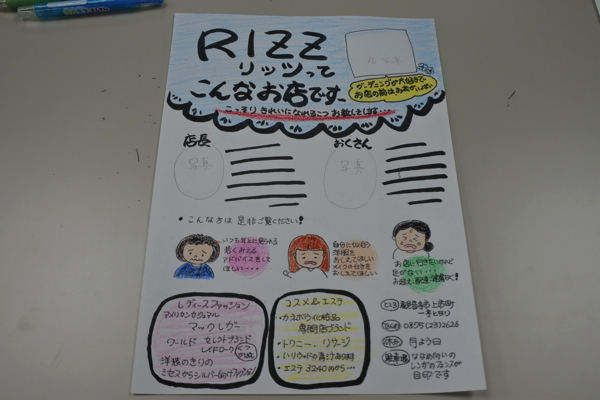 RIZZ
リッツって
こんなお店です。
ガーデニングが大好きで
お店の前はお花がいっぱい
こっそりきれいになれるコツお教えします…
店長
おくさん
写真
写真
・こんな方は是非ご覧ください!
いつも年上に見られる
若くみえる
アドバイスをして
ほしい…
自分に似合う
洋服を
おしえてほしい
メイクの仕方を
おしえてほしい
お店に行きたいけれど
足がない…
レディースファッション
アメリカンカジュアル
マックレガー
ワールド セレクトブランド
洋服のきりの
ミセスからシルバー向けファッション
コスメ&エステ
・カネボウ化粧品
専門店ブランド
・トワニー、リサージ
・エステ 3240円から…
0895(23)2626
休み 月よう日
駐車場 ななめ向いの
レンガのフェンスが
目印です